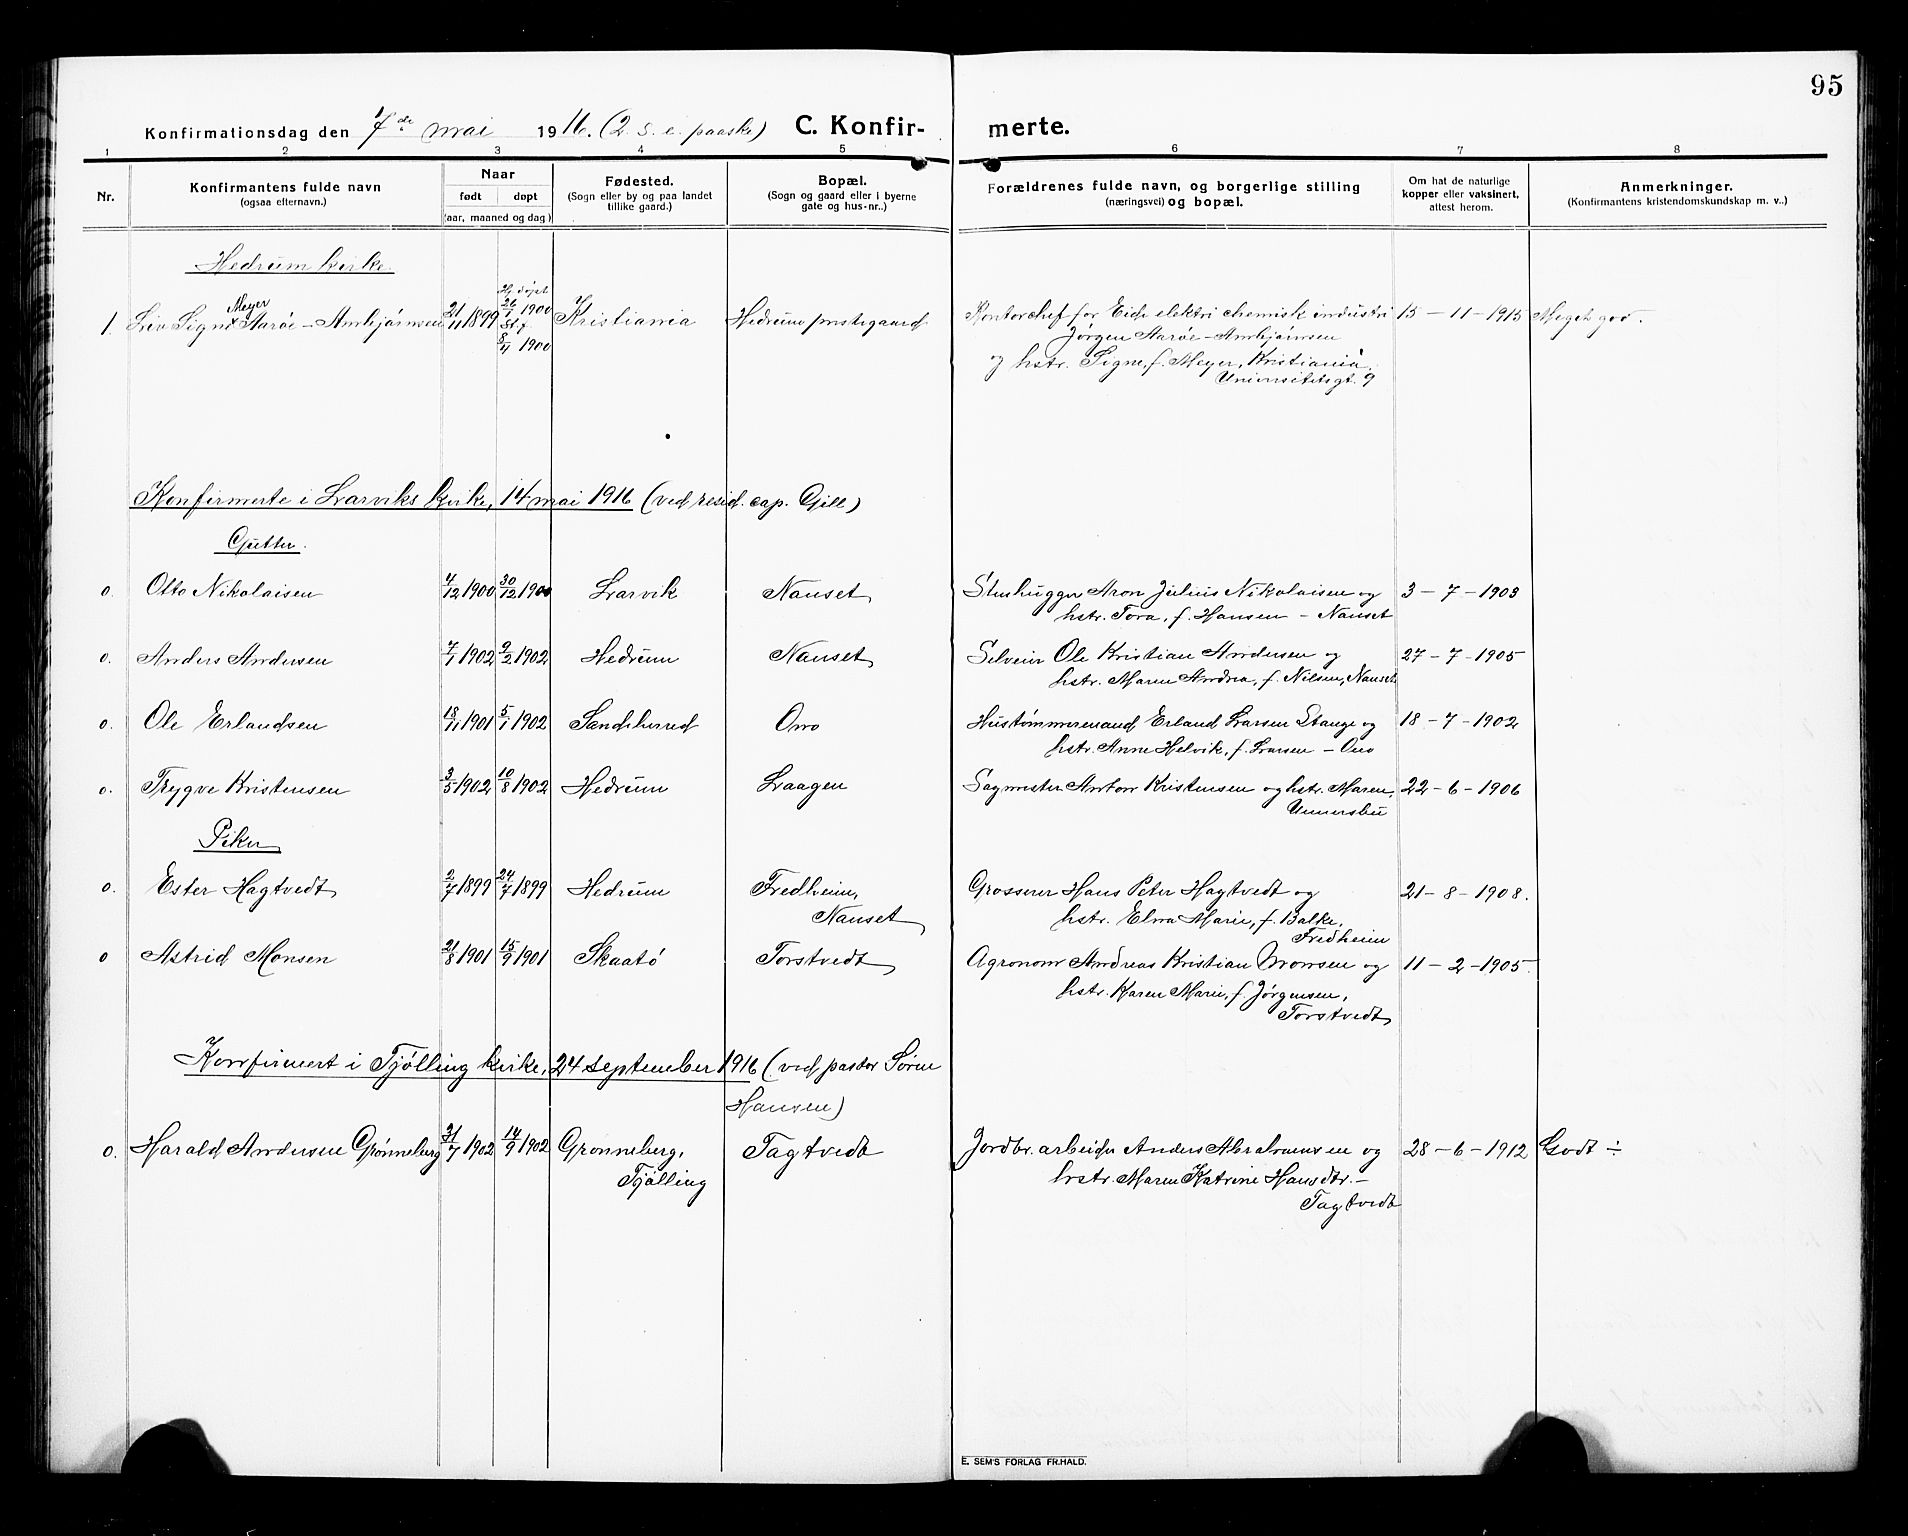 95
Konfirmationsdag den 7de mai 1916. (2. s. e. paaske) C. Konfir- merte.
1 2 3 4 5 6 7 8
Nr. Konfirmantens fulde navn (ogsaa efternavn.) Naar født døpt (aar, maaned og dag) Fødested. (Sogn eller by og paa landet tillike gaard.) Bopæl. (Sogn og gaard eller i byerne gate og hus-nr..) Forældrenes fulde navn, og borgerlige stilling (næringsvei) og bopæl. Om hat de naturlige kopper eller vaksinert, attest herom. Anmerkninger. (Konfirmantens kristendomskundskap m. v..)
Hedrum kirke.
Hj. døpt
Meyer
1. Liv Signe Aarøe-Arnbjørnsen 21/11 1899 26/1 1900 St. f. 8/4 1900 Kristiania Hedrum prestegaard Kontorchef for Eide elektri chemisk industri 15-11-1915 Meget god.
Jørgen Aarøe-Arnbjørnsen
og hstr. Signe, f. Meyer, Kristiania,
Universitetsgt. 9
Konfirmerte i Larviks kirke, 14 mai 1916 (ved resid. cap. Gjill)
Gutter.
0. Otto Nikolaisen 4/12 1900 30/12 1900 Larvik Nanset Stenhugger Aron Julius Nikolaisen og 3-7-1903
hstr. Tora, f. Hansen - Nanset
0. Anders Andersen 7/1 1902 9/2 1902 Hedrum Nanset Selveier Ole Kristian Andersen og 27-7-1905
hstr. Maren Andrea, f. Nilsen, Nanset
0. Ole Erlandsen 18/11 1901 5/1 1902 Sandeherred Ono Hustømmermand Erland Larsen Stange og 18-7-1902
hstr. Anne Helvik, f. Larsen - Ono
0. Trygve Kristensen 3/5 1902 10/8 1902 Hedrum Laagen Sagmester Anton Kristensen og hstr. Maren, 22-6-1906
Unnersbu
Piker
0. Ester Hagtvedt 2/7 1899 24/7 1899 Hedrum Fredheim, Grosserer Hans Peter Hagtvedt og 21-8-1908.
Nanset hstr. Elna Marie, f. Balke,
Fredheim
0 Astrid Monsen 21/8 1901 15/9 1901 Skaatø Torstvedt Agronom Andreas Kristian Monsen og 11-2-1905.
hstr. Karen Marie, f. Jørgensen,
Torstvedt
Konfirmert i Tjølling kirke, 24 september 1916 (ved pastor Søren
Hansen)
0. Harald Andersen Grønneberg 31/7 1902 14/9 1902 Grønneberg, Tagtvedt Jordbr. arbeider Anders Abrahamsen og 28-6-1912 Godt ÷
Tjølling hstr. Maren Katrine Hansdtr. -
Tagtvedt
E. SEM'S FORLAG FR.HALD.